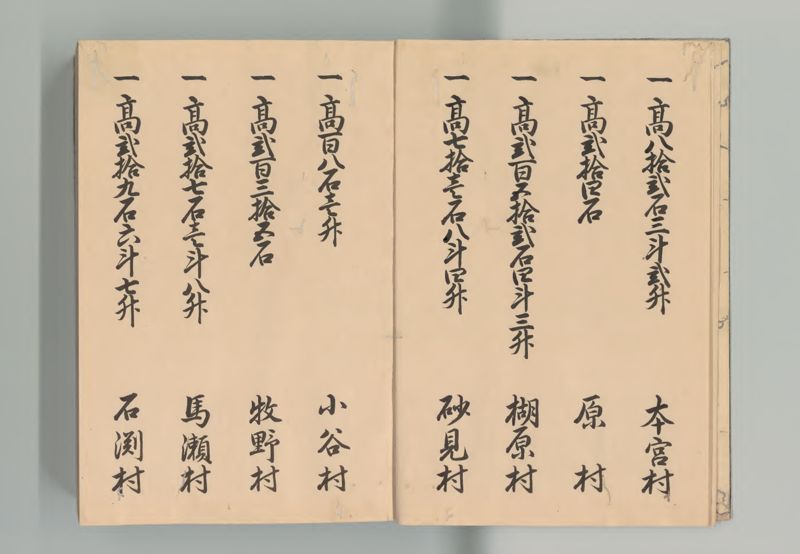 一髙八拾弐石三斗弐升 本宮村
一髙弐拾四石 原村
一髙弐百五拾弐石四斗三升 楜原村
一髙七拾壱石八斗四升 砂見村
一髙百八石壱升 小谷村
一髙弐百三拾五石 牧野村
一髙弐拾七石壱斗八升 馬瀬村
一髙弐拾九石六斗七升 石渕村